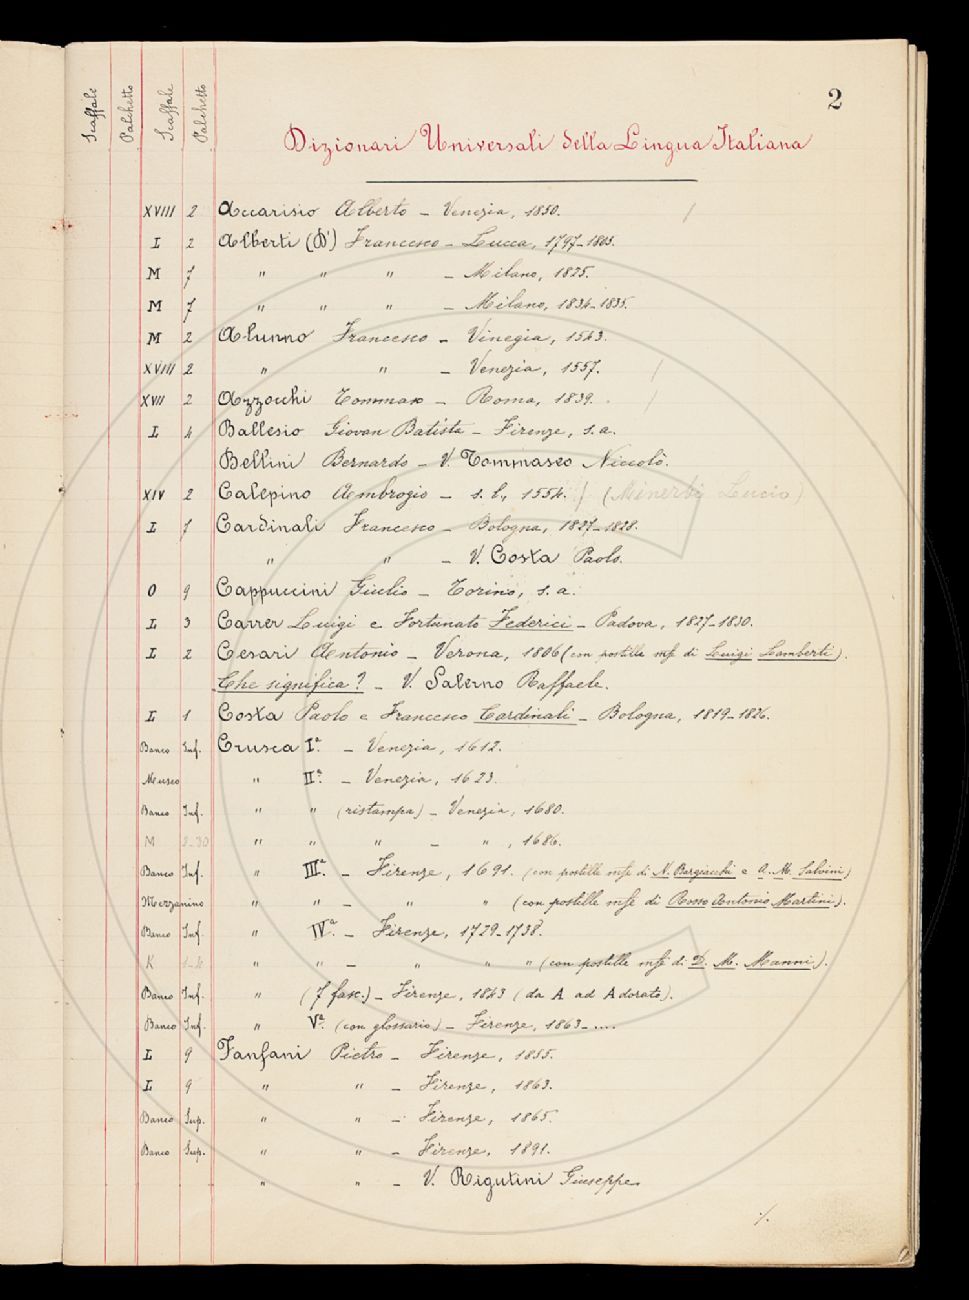 2
Scaffale Palchetto Scaffale Palchetto
Dizionari Universali della Lingua Italiana
XVIII 2 Accarisio Alberto – Venezia, 1550. /
L 2 Alberti (D') Francesco – Lucca, 1797–1805.
M 7 " " " – Milano, 1825.
M 7 " " " – Milano, 1834–1835.
M 2 Alunno Francesco – Vinegia, 1543.
XVIII 2 " " – Venezia, 1557. /
XVII 2 Azzocchi Tommaso – Roma, 1839. /
L 4 Ballesio Giovan Batista – Firenze, s.a.
Bellini Bernardo – V. Tommaseo Niccolò.
XIV 2 Calepino Ambrogio – s. l., 1554. / (Minerbi Lucio)
L 7 Cardinali Francesco – Bologna, 1827–1828.
" " – V. Costa Paolo.
O 9 Cappuccini Giulio – Torino, s.a.
L 3 Carrer Luigi e Fortunato Federici – Padova, 1827–1830.
L 2 Cesari Antonio – Verona, 1806 (con postille mss di Luigi Lamberti).
Che significa? – V. Salerno Raffaele.
L 1 Costa Paolo e Francesco Cardinali – Bologna, 1819–1826.
Banco Inf. Crusca Iª. – Venezia, 1612.
Museo " IIª. – Venezia, 1623.
Banco Inf. " " (ristampa) – Venezia, 1680.
M " " " – " , 1686.
Banco Inf. " IIIª. – Firenze, 1691. (con postille mss di N. Bargiacchi e A. M. Salvini)
Mezzanino " " – " " (con postille mss di Rosso Antonio Martini).
Banco Inf. " IVª. – Firenze, 1729–1738.
K " " – " " " (con postille mss di D. M. Manni).
Banco Inf. " (7 fasc.) – Firenze, 1843 (da A ad Adorato).
Banco Inf. " Vª. (con glossario) – Firenze, 1863–....
L 9 Fanfani Pietro – Firenze, 1855.
L 9 " " – Firenze, 1863.
Banco Sup. " " – Firenze, 1865.
Banco Sup. " " – Firenze, 1891.
" " – V. Rigutini Giuseppe
./.